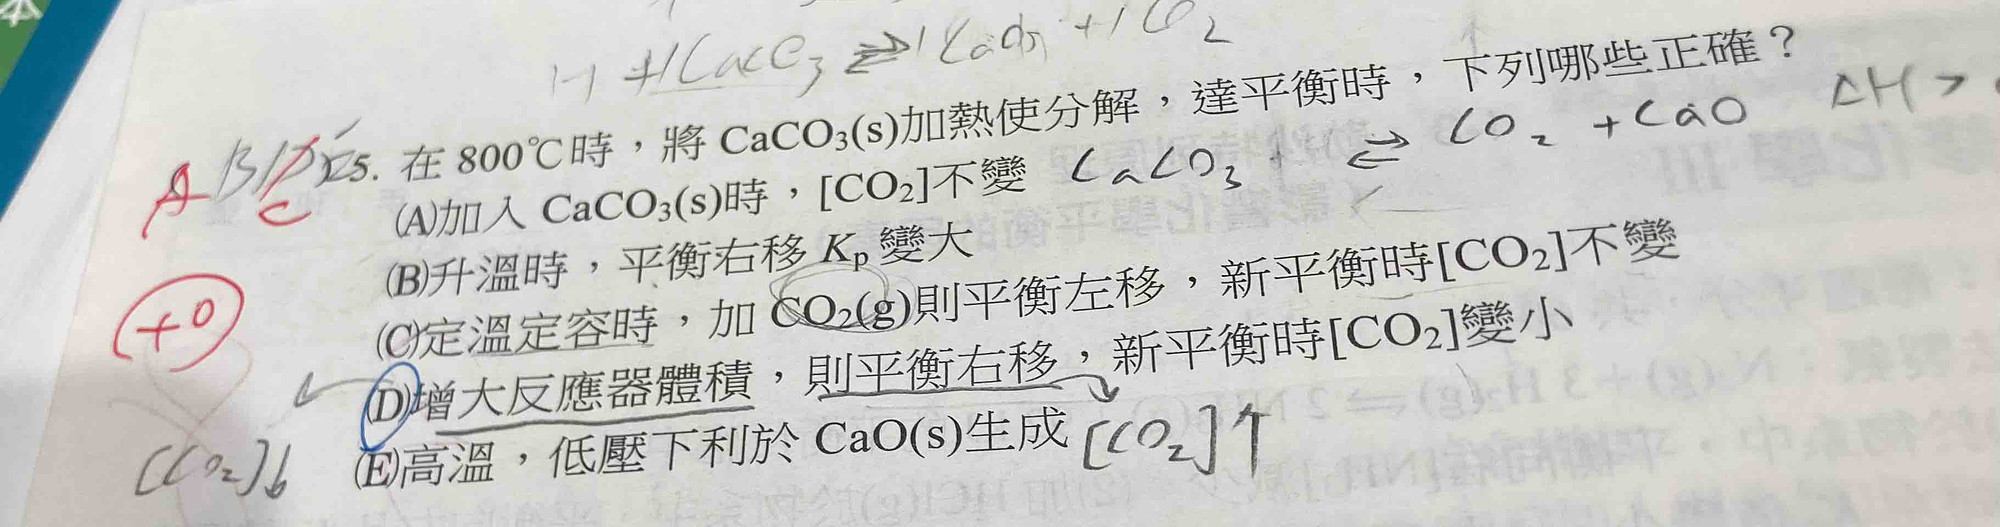 本
CaCO₃ ⇌ 1 CaO + 1 CO₂
A B D E 5. 在 800℃時，將 CaCO₃(s)加熱使分解，達平衡時，下列哪些正確？
C
(A)加入 CaCO₃(s)時，[CO₂]不變 CaCO₃ ⇌ CO₂ + CaO ΔH >
(B)升溫時，平衡右移 Kp 變大
+0
(C)定溫定容時，加 CO₂(g)則平衡左移，新平衡時[CO₂]不變
(D)增大反應器體積，則平衡右移，新平衡時[CO₂]變小
[CO₂]↓
(E)高溫，低壓下利於 CaO(s)生成 [CO₂]↑